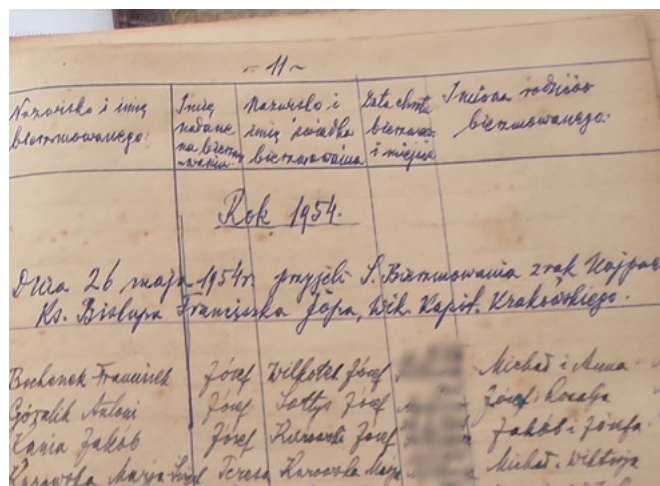 - 11 -
Nazwisko i imię bierzmowanego: Imię nadane na bierzmo-wania Nazwisko i imię świadka bierzmowania Data chrztu bierzmow. i miejsce Imiona rodziców bierzmowanego.
Rok 1954.
Dnia 26 maja 1954r. przyjęli S. Bierzmowania z rąk Najprz
Ks. Biskupa Franciszka Jopa, Wik. Kapit. Krakowskiego.
Bochenek Franciszek Józef Józef Michał i Anna
Góralik Antoni Józef Sołtys Józef Józef i Rozalja
Kania Jakób Józef Józef Jakób i Józefa
Marja Teresa Karowska Michał i Wiktorja